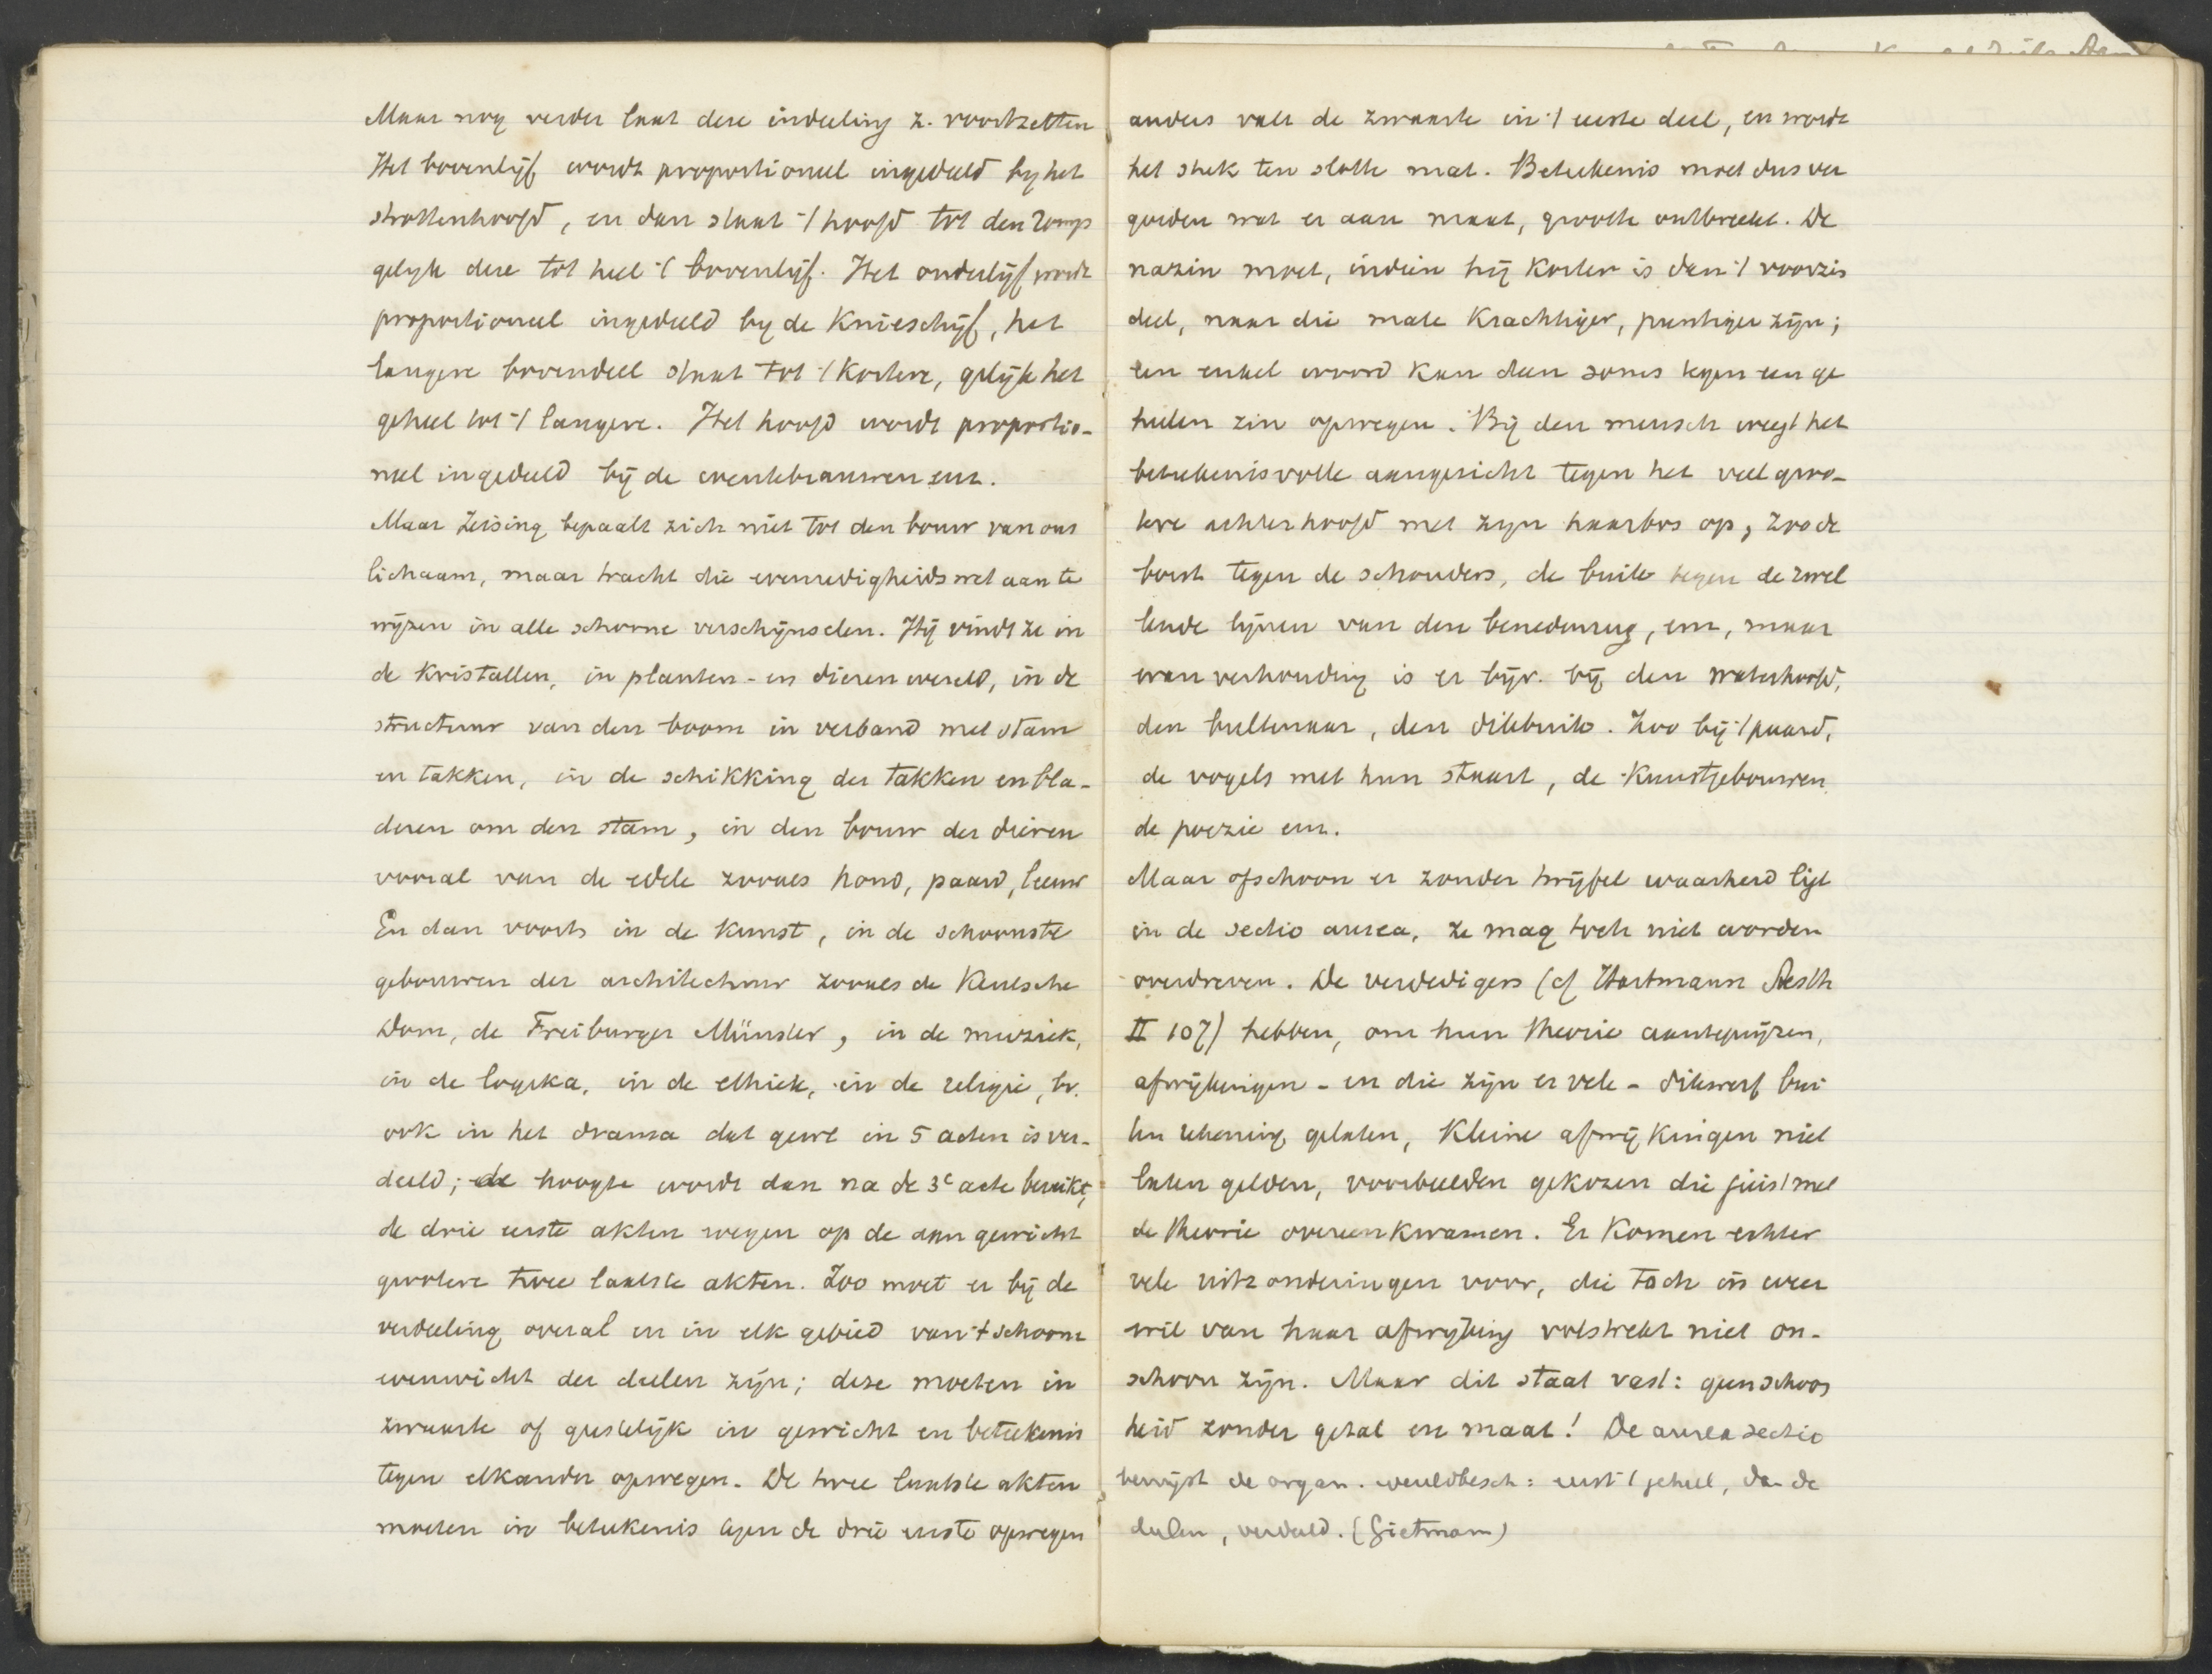 Maar nog verder laat deze indeeling z. voortzetten
Het bovenlijf wordt proportioneel ingedeeld by het
strottenhoofd, en dan staat 't hoofd tot den romp
gelijk deze tot heel 't bovenlijf. Het onderlijf wordt
proportioneel ingedeeld by de Knieschijf, het
langere bovendeel staat tot 't Kortere, gelijk het
geheel tot 't langere. Het hoofd wordt proportio-
neel ingedeeld bij de wenkbrauwen enz.
Maar Zeising bepaalt zich niet tot den bouw van ons
lichaam, maar tracht die evenredigheidswet aan te
wijzen in alle schoone verschijnselen. Hij vindt ze in
de Kristallen, in planten- en dierenwereld, in de
structuur van den boom in verband met stam
en takken, in de schikking der takken en bla-
deren om den stam, in den bouw der dieren
vooral van de edele zooals hond, paard, leeuw
En dan voorts in de Kunst, in de schoonste
gebouwen der architectuur zooals de Keulsche
Dom, de Freiburger Münster, in de muziek,
in de logika, in de ethiek, in de religie, bv.
ook in het drama dat gewl in 5 acten is ver-
deeld; de hoogte wordt dan na de 3e acte bereikt,
de drie eerste akten wegen op de aan gewicht
grootere twee laatste akten. Zoo moet er bij de
verdeeling overal en in elk gebied van 't schoone
evenwicht der deelen zijn; deze moeten in
zwaarte of geestelijk in gewicht en beteekenis
tegen elkander opwegen. De twee laatste akten
moeten in beteekenis tegen de drie eerste opwegen
anders valt de zwaarte in 't eerste deel, en wordt
het stuk ten slotte mat. Beteekenis moet dus ver
goeden wat er aan maat, grootte ontbreekt. De
nazin moet, indien hij Korter is dan 't voorzin
deel, naar die mate Krachtiger, puntiger zijn;
een enkel woord Kan dan soms tegen een ge
heelen zin opwegen. Bij den mensch weegt het
beteekenisvolle aangezicht tegen het veel groo-
tere achterhoofd met zijn haarbos op, zoo de
borst tegen de schouders, de buik tegen de zwel
lende lijnen van den benedenrug, enz, maar
wanverhouding is er bijv. bij den waterhoofd,
den bultenaar, den dikbuik. Zoo bij 't paard,
de vogels met hun staart, de Kunstgebouwen
de poezie enz.
Maar ofschoon er zonder twijfel waarheid ligt
in de sectio aurea, ze mag toch niet worden
overdreven. De verdedigers (cf Hartmann Aesth
II 107) hebben, om hun theorie aanteprijzen,
afwijkingen - en die zijn er vele - dikwerf bui
ten rekening gelaten, Kleine afwijkingen niet
laten gelden, voorbeelden gekozen die juist met
de theorie overeenkwamen. Er Komen echter
vele uitzonderingen voor, die toch in weer
wil van haar afwijking volstrekt niet on-
schoon zijn. Maar dit staat vast: geen schoon
heid zonder getal en maat! De aurea sectio
bewijst de organ. wereldbesch: eerst 't geheel, dan de
deelen, verdeeld. (Gietmann)